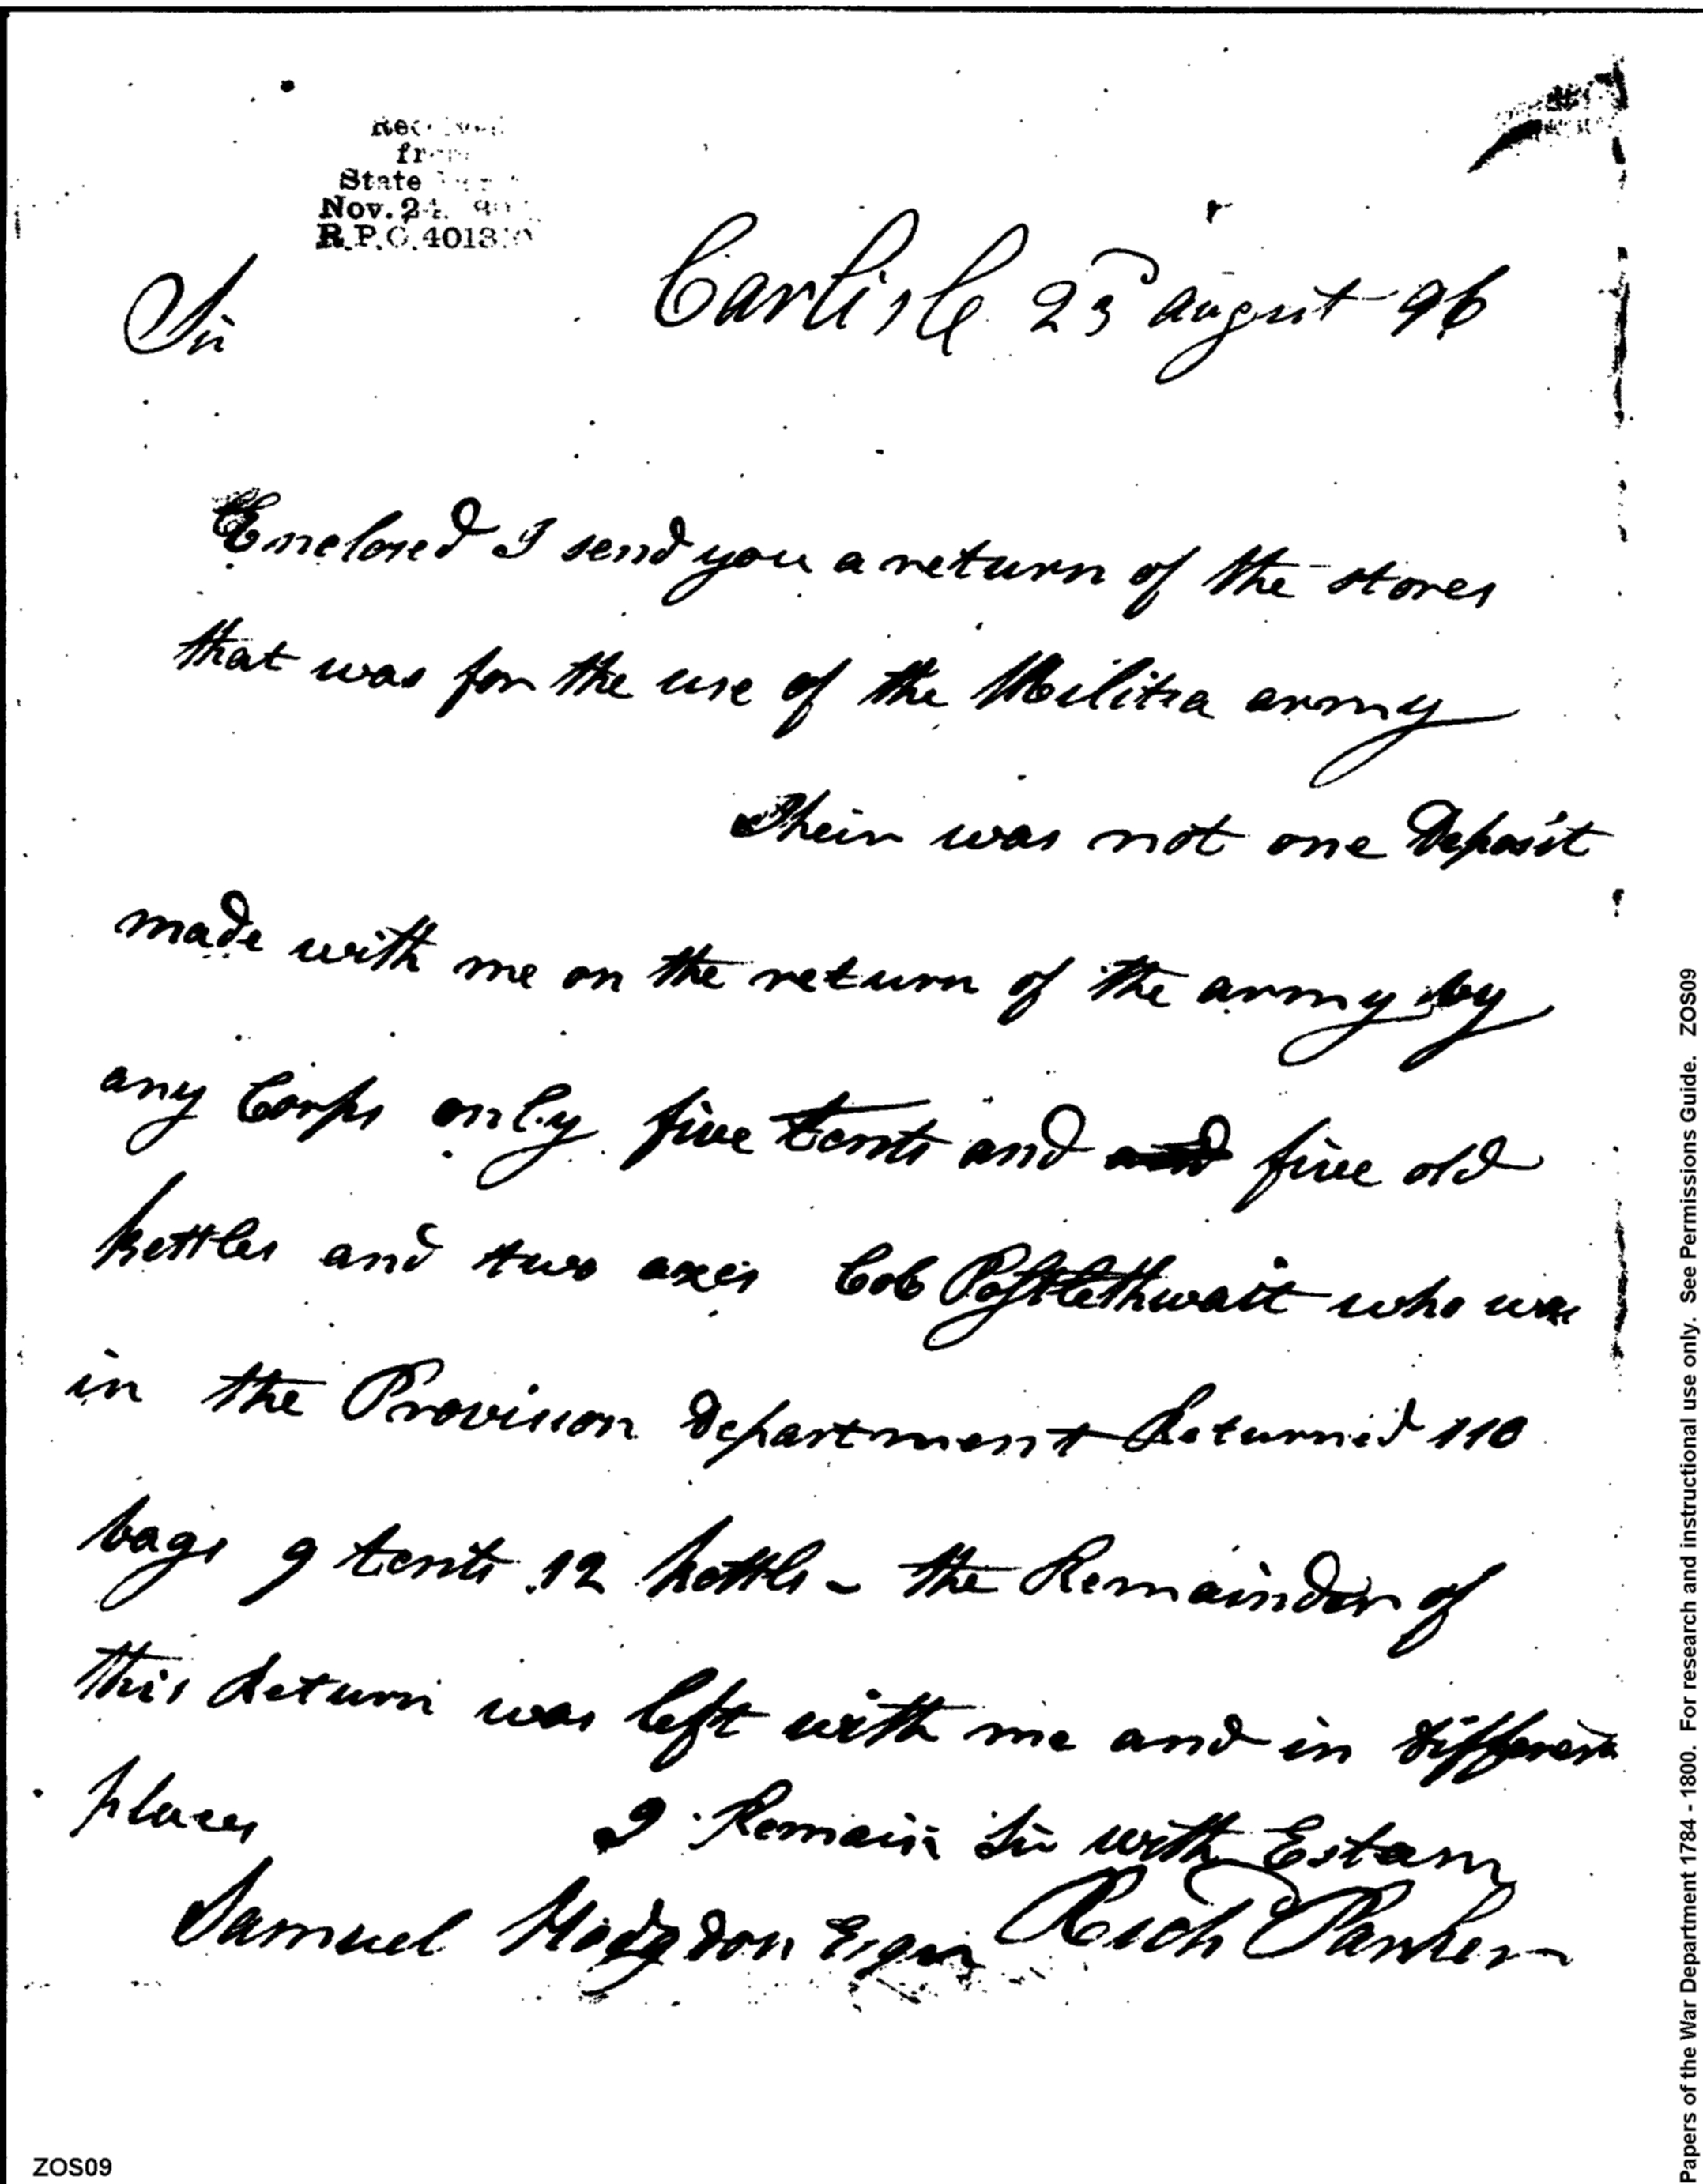 Received
from
State
Nov. 24.
R.P.O. 401310
Carlisle 25 august 96
Sir
Enclosed I send you a return of the stores
that was for the use of the Militia army
Their was not one Deposit
made with me on the return of the army by
any Corps only five tents and five old
kettles and two axes Col Postlethwait who was
in the Provision Department Returned 110
bags 9 tents 12 kettls - the Remainder of
this Return was left with me and in different
places
I Remain Sir with Estam
Samuel Hodgdon Esqr Rich Parker
ZOS09
Papers of the War Department 1784 - 1800. For research and instructional use only. See Permissions Guide. ZOS09